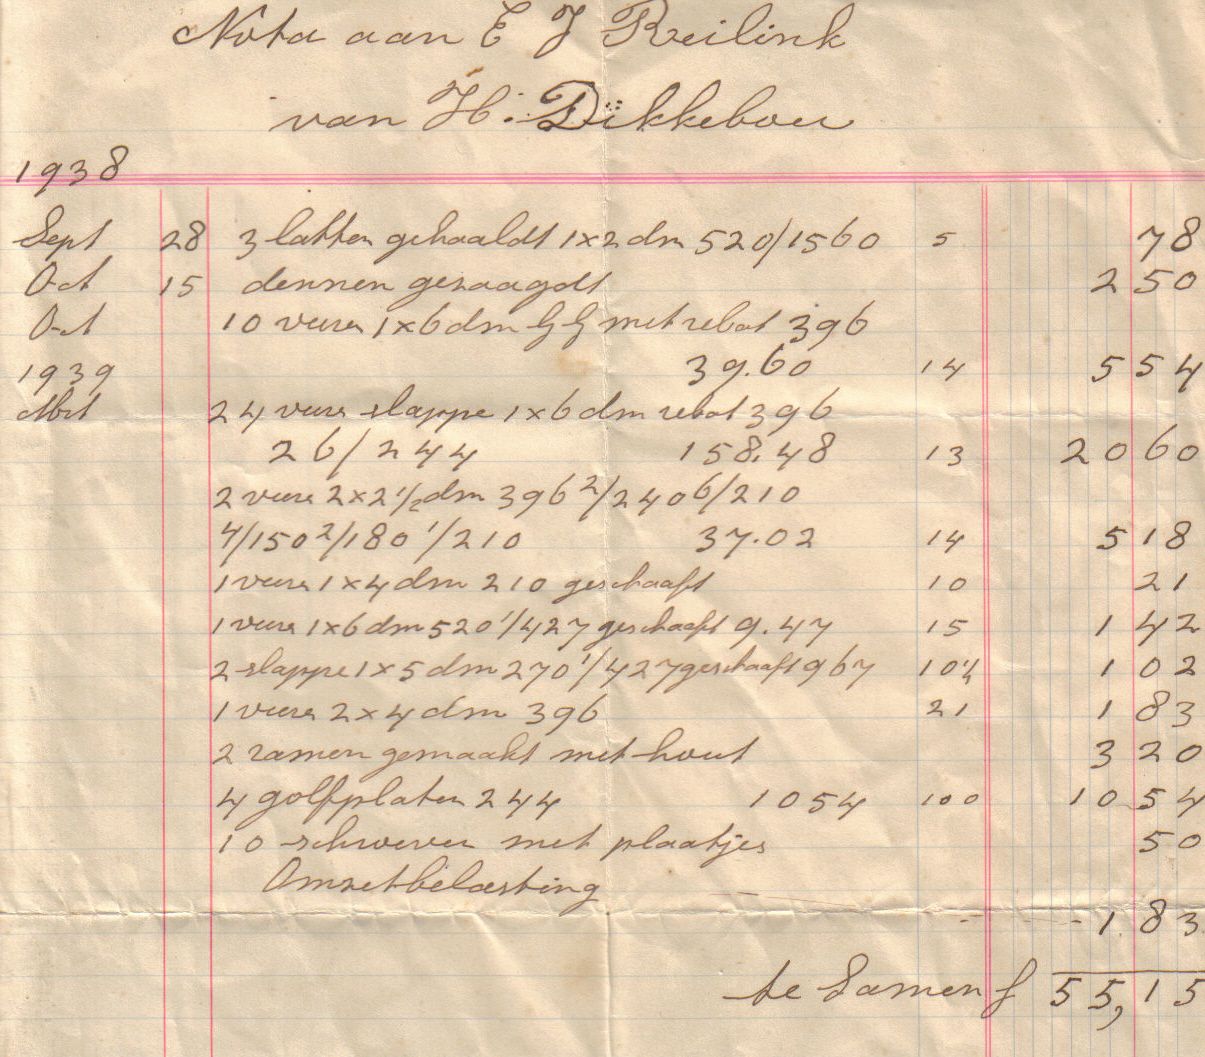 Nota aan E J Reilink
van H. Dikkeboer
1938
Sept 28 3 latten gehaaldt 1x2 dm 520/1560 5 78
Oct 15 dennen gezaagdt 2 50
Oct 10 vure 1x6 dm met rebat 396
1939 39.60 14 5 54
Mrt 24 vure slappe 1x6 dm rebat 396
26/244 158.48 13 20 60
2 vure 2x2 1/2 dm 396 2/240 6/210
4/150 2/180 1/210 37.02 14 5 18
1 vure 1x4 dm 210 geschaaft 10 21
1 vure 1x6 dm 520 1/427 geschaaft 9.47 15 1 42
2 slappe 1x5 dm 270 1/427 geschaaft 967 10½ 1 02
1 vure 2x4 dm 396 21 1 83
2 ramen gemaakt met hout 3 20
4 golfplaten 244 1054 100 10 54
10 schroeven met plaatjes 50
Omzetbelasting
1 83
te Samen f 55,15